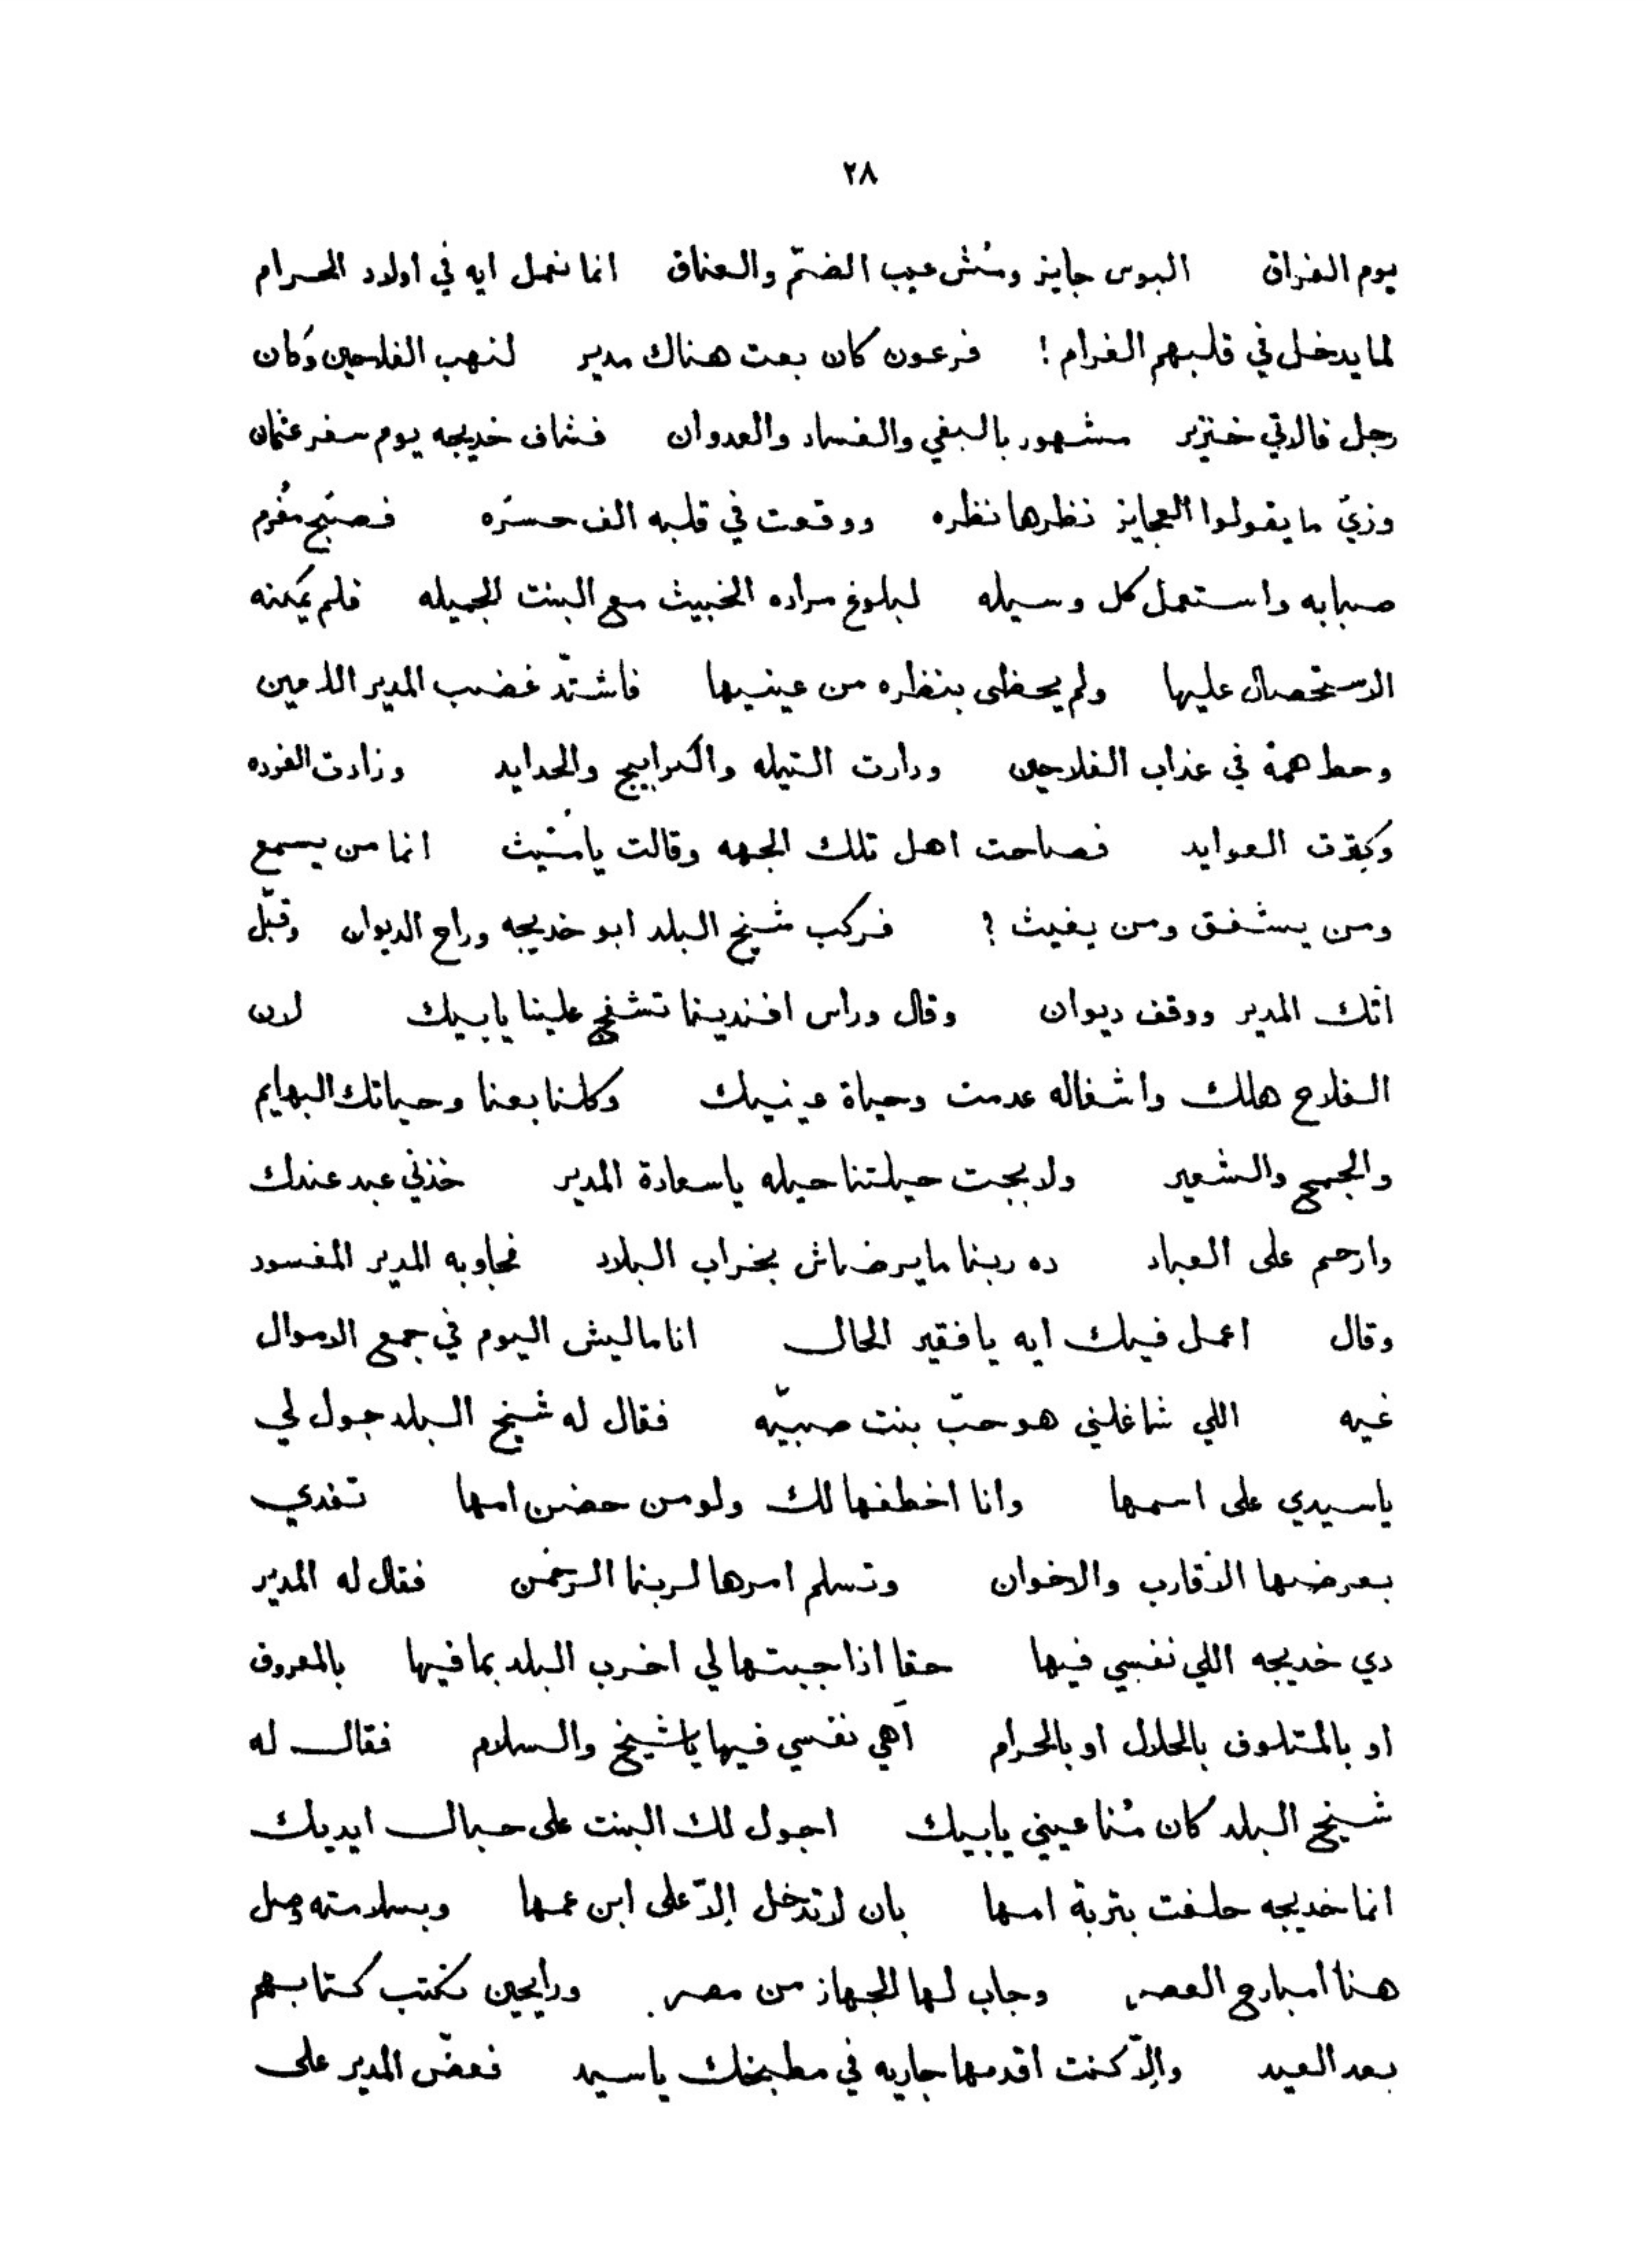 ٢٨
يوم الفراق البوس جايز ومُش عيب الضمّ والعناق انما نعمل ايه في اولاد الحرام
لما يدخل في قلبهم الغرام ! فرعون كان بعت هناك مدير لنهب الفلاحين وكان
رجل فالاتي خنزير مشهور بالبغي والفساد والعدوان فشاف خديجه يوم سفر عثمان
وزيّ ما يقولوا العجايز نظرها نظره ووقعت في قلبه الف حسره فصبّح مُغرم
صبابه واستعمل كل وسيله لبلوغ مراده الخبيث مع البنت الجميله فلم يمكنه
الاستحصال عليها ولم يحظى بنظره من عينيها فاشتدّ غضب المدير اللعين
وحط همهُ في عذاب الفلاحين ودارت التيله والكرابيج والحدايد وزادت الفرده
وكترت العوايد فصاحت اهل تلك الجهه وقالت يا مُغيث انما من يسمع
ومن يشفق ومن يغيث ؟ فركب شيخ البلد ابو خديجه وراح الديوان وقبّل
اتك المدير ووقف ديوان وقال وراس افندينا تشفج علينا يا بيك لان
الفلاح هلك واشغاله عدمت وحياة عينيك وكلنا بعنا وحياتك البهايم
والجمح والشعير ولا بجت حيلتنا حيله يا سعادة المدير خذني عبد عندك
وارحم على العباد ده ربنا ما يرضاش بخراب البلاد فجاوبه المدير المفسود
وقال اعمل فيك ايه يا فقير الحال انا ماليش اليوم في جمع الاموال
غيه اللي شاغلني هو حبّ بنت صبيّه فقال له شيخ البلد جول لي
يا سيدي على اسمها وانا اخطفها لك ولو من حضن امها تفدي
بعرضها الاقارب والاخوان وتسلم امرها لربنا الرحمن فقال له المدير
دي خديجه اللي نفسي فيها حقا اذا جبتها لي اخرب البلد بما فيها بالمعروف
او بالمتلوف بالحلال او بالحرام اهي نفسي فيها يا شيخ والسلام فقال له
شيخ البلد كان مُنا عيني يا بيك اجول لك البنت على حبال ايديك
انما خديجه حلفت بتربة امها بان لا تدخل إلاّ على ابن عمها وبسلامته وصل
هنا امبارح العصر وجاب لها الجهاز من مصر ورايحين نكتب كتابهم
بعد العيد والاّ كنت اقدمها جاريه في مطبخك يا سيد فعضّ المدير على